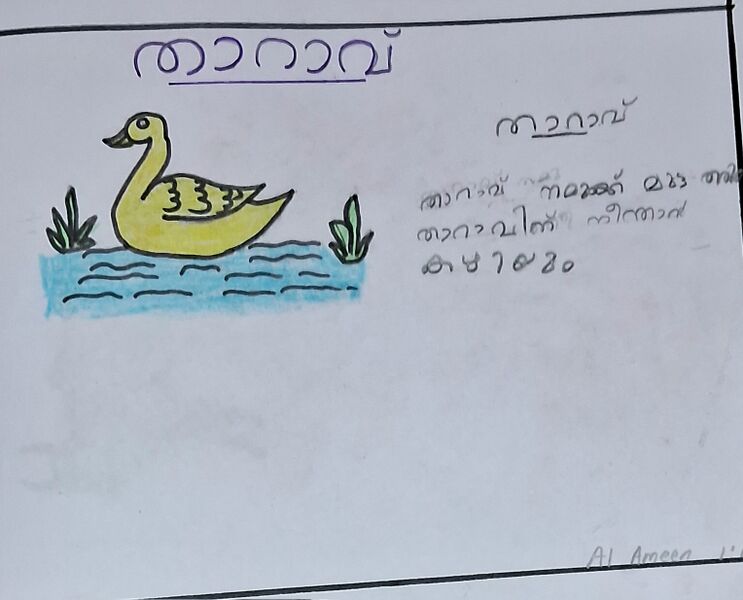 താറാവ്
താറാവ്
താറാവ് നമുക്ക് മുട്ട
താറാവിന് നീന്താൻ
കഴിയും
Al Ameen